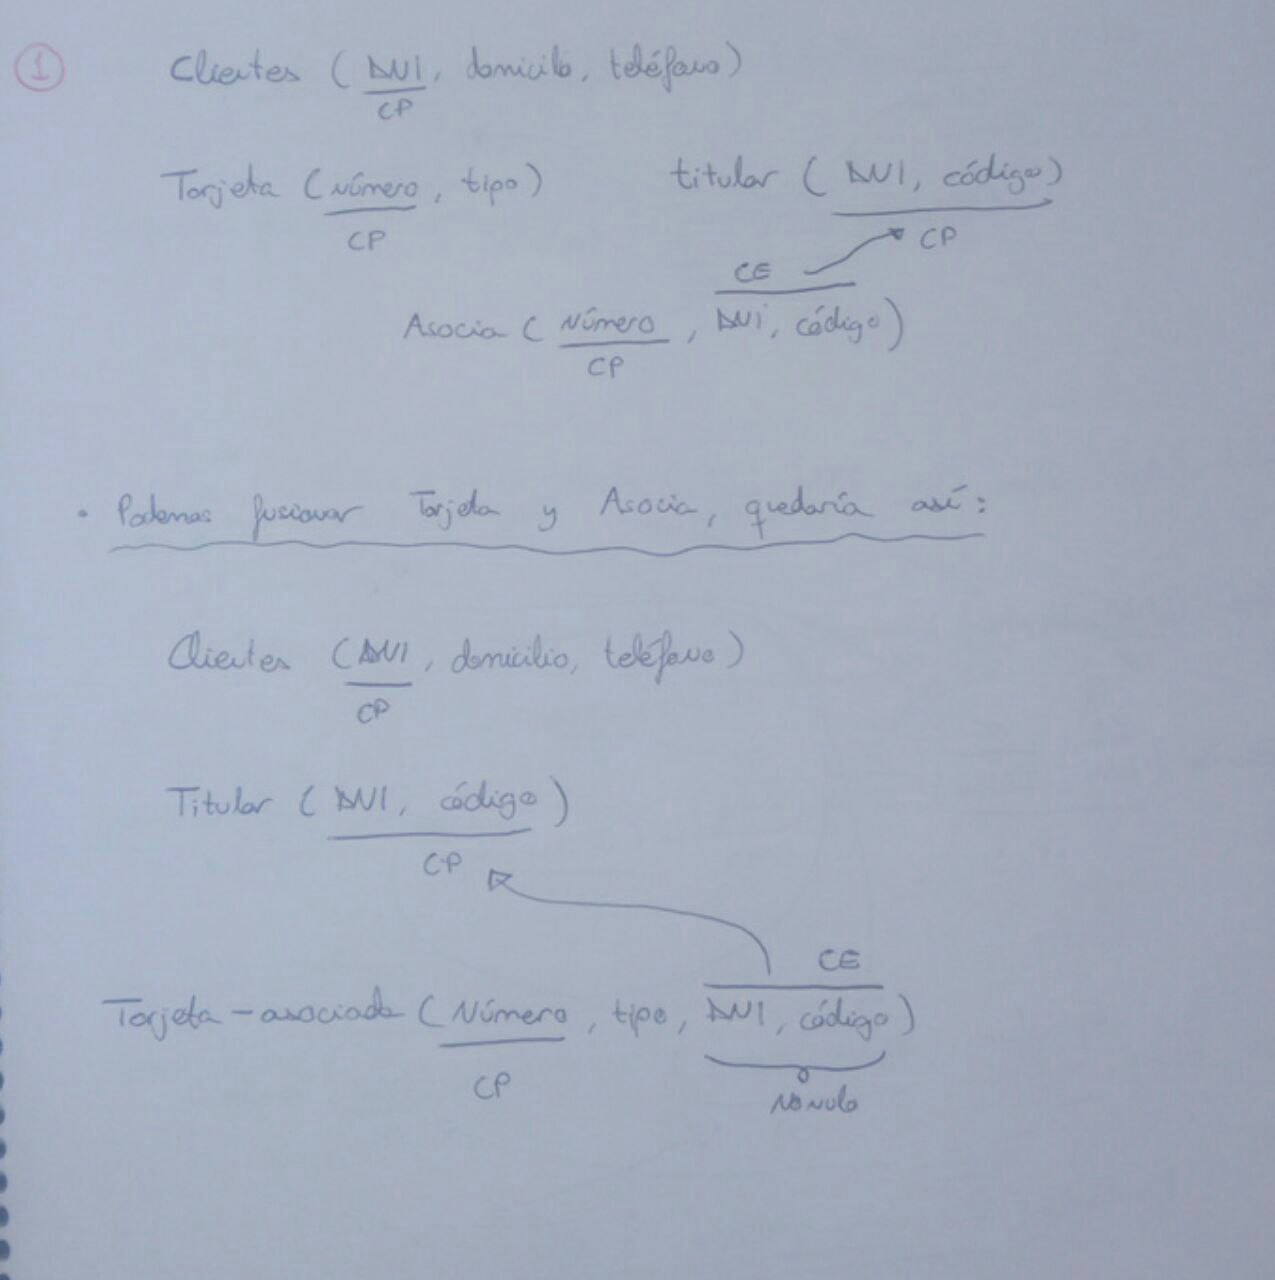 1
Clientes ( DNI, domicilo, teléfono)
CP
Tarjeta (Número, tipo)
CP
titular ( DNI, código)
CP
CE
Asocia ( Número, DNI, código)
CP
• Podemos fusionar Tarjeta y Asocia, quedaría así:
Clientes (DNI, domicilio, teléfono)
CP
Titular ( DNI, código )
CP
CE
Tarjeta-asociada ( Número, tipo, DNI, código)
CP
No nulo